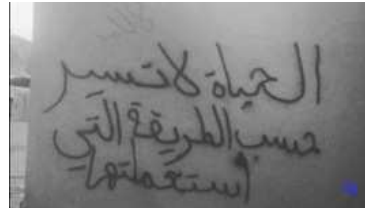 الحياة لا تسير
حسب الطريقة التي
استعملتها